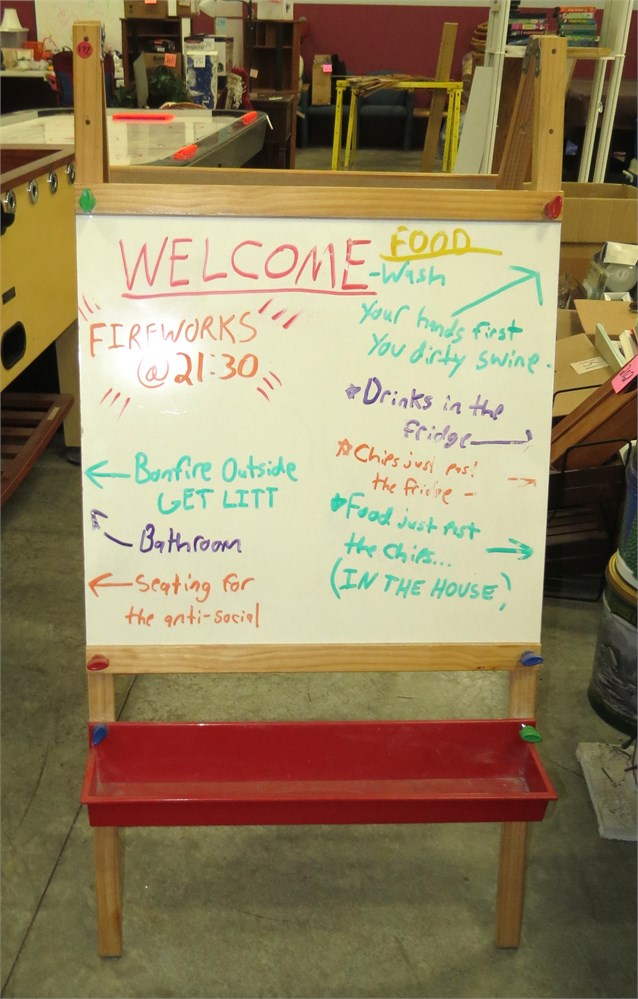 WELCOME
FIREWORKS
@ 21:30
← Bonfire Outside
GET LITT
Bathroom
← Seating for
the anti-social
FOOD
-Wash
Your hands first
You dirty swine.
Drinks in the
fridge →
Chips just past
the fridge - →
Food just past
the Chips... →
(IN THE HOUSE)